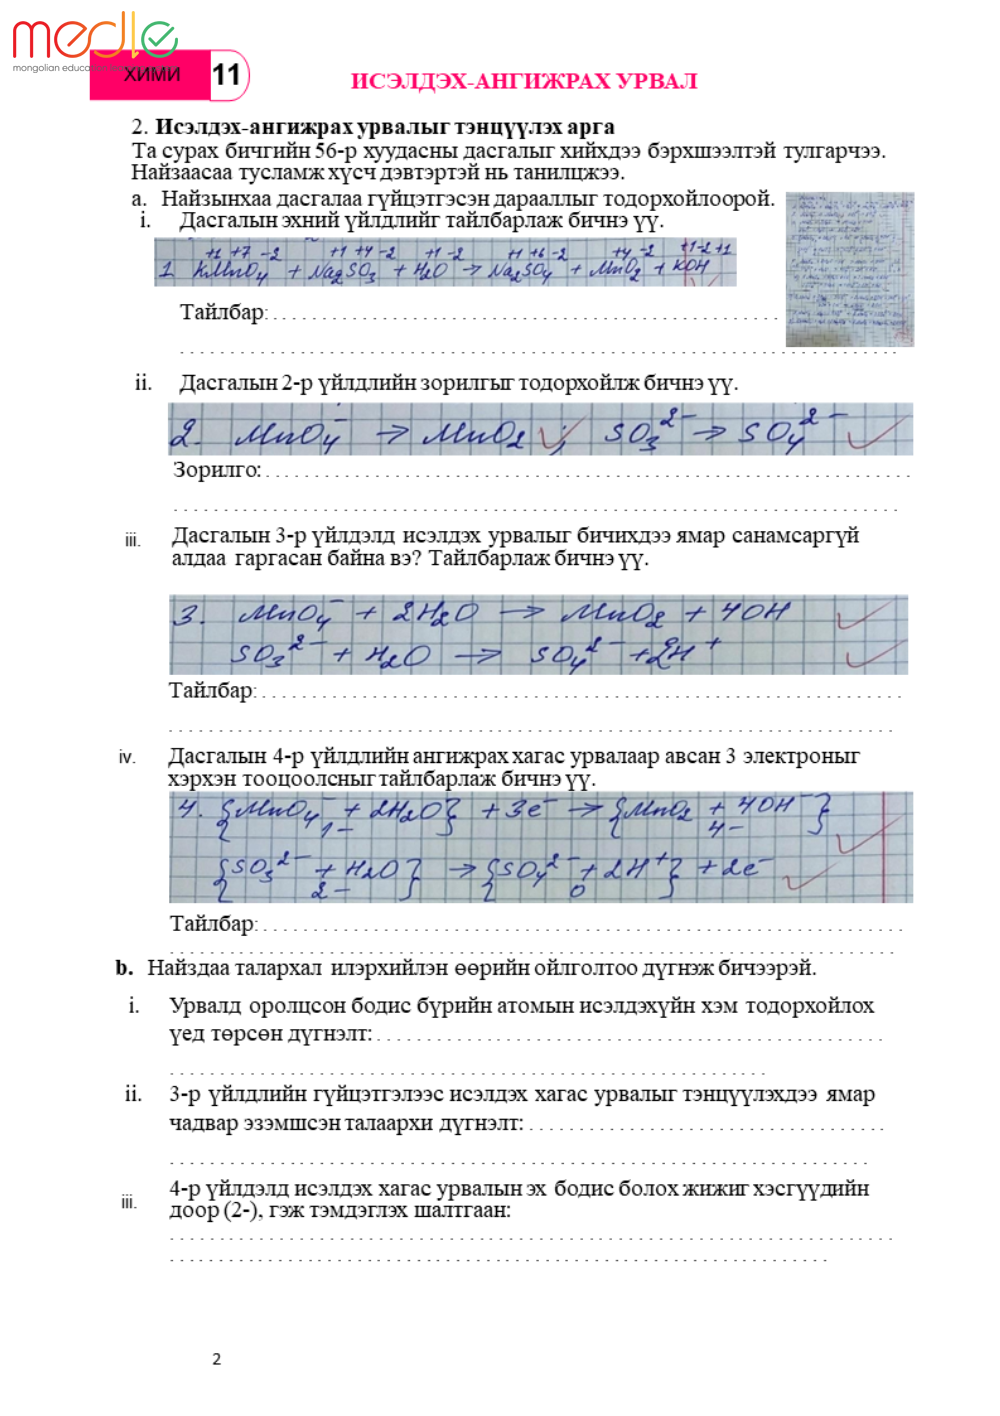 medle
mongolian educa
ХИМИ 11
ИСЭЛДЭХ-АНГИЖРАХ УРВАЛ
2. Исэлдэх-ангижрах урвалыг тэнцүүлэх арга
Та сурах бичгийн 56-р хуудасны дасгалыг хийхдээ бэрхшээлтэй тулгарчээ.
Найзаасаа тусламж хүсч дэвтэртэй нь танилцжээ.
a. Найзынхаа дасгалаа гүйцэтгэсэн дарааллыг тодорхойлоорой.
i. Дасгалын эхний үйлдлийг тайлбарлаж бичнэ үү.
+1 +7 -2 +1 +4 -2 +1 -2 +1 +6 -2 +4 -2 +1 -2 +1
1 KMnO4 + Na2SO3 + H2O → Na2SO4 + MnO2 + KOH
Тайлбар:
ii. Дасгалын 2-р үйлдлийн зорилгыг тодорхойлж бичнэ үү.
2. MnO4⁻ → MnO2 ; SO3²⁻ → SO4²⁻
Зорилго:
iii. Дасгалын 3-р үйлдэлд исэлдэх урвалыг бичихдээ ямар санамсаргүй
алдаа гаргасан байна вэ? Тайлбарлаж бичнэ үү.
3. MnO4⁻ + 2H2O → MnO2 + 4OH
SO3²⁻ + H2O → SO4²⁻ + 2H⁺
Тайлбар:
iv. Дасгалын 4-р үйлдлийн ангижрах хагас урвалаар авсан 3 электроныг
хэрхэн тооцоолсныг тайлбарлаж бичнэ үү.
4. {MnO4⁻ + 2H2O} + 3e⁻ → {MnO2 + 4OH⁻}
1− 4−
{SO3²⁻ + H2O} → {SO4²⁻ + 2H⁺} + 2e⁻
2− 0
Тайлбар:
b. Найздаа талархал илэрхийлэн өөрийн ойлголтоо дүгнэж бичээрэй.
i. Урвалд оролцсон бодис бүрийн атомын исэлдэхүйн хэм тодорхойлох
үед төрсөн дүгнэлт:
ii. 3-р үйлдлийн гүйцэтгэлээс исэлдэх хагас урвалыг тэнцүүлэхдээ ямар
чадвар эзэмшсэн талаархи дүгнэлт:
iii. 4-р үйлдэлд исэлдэх хагас урвалын эх бодис болох жижиг хэсгүүдийн
доор (2-), гэж тэмдэглэх шалтгаан:
2